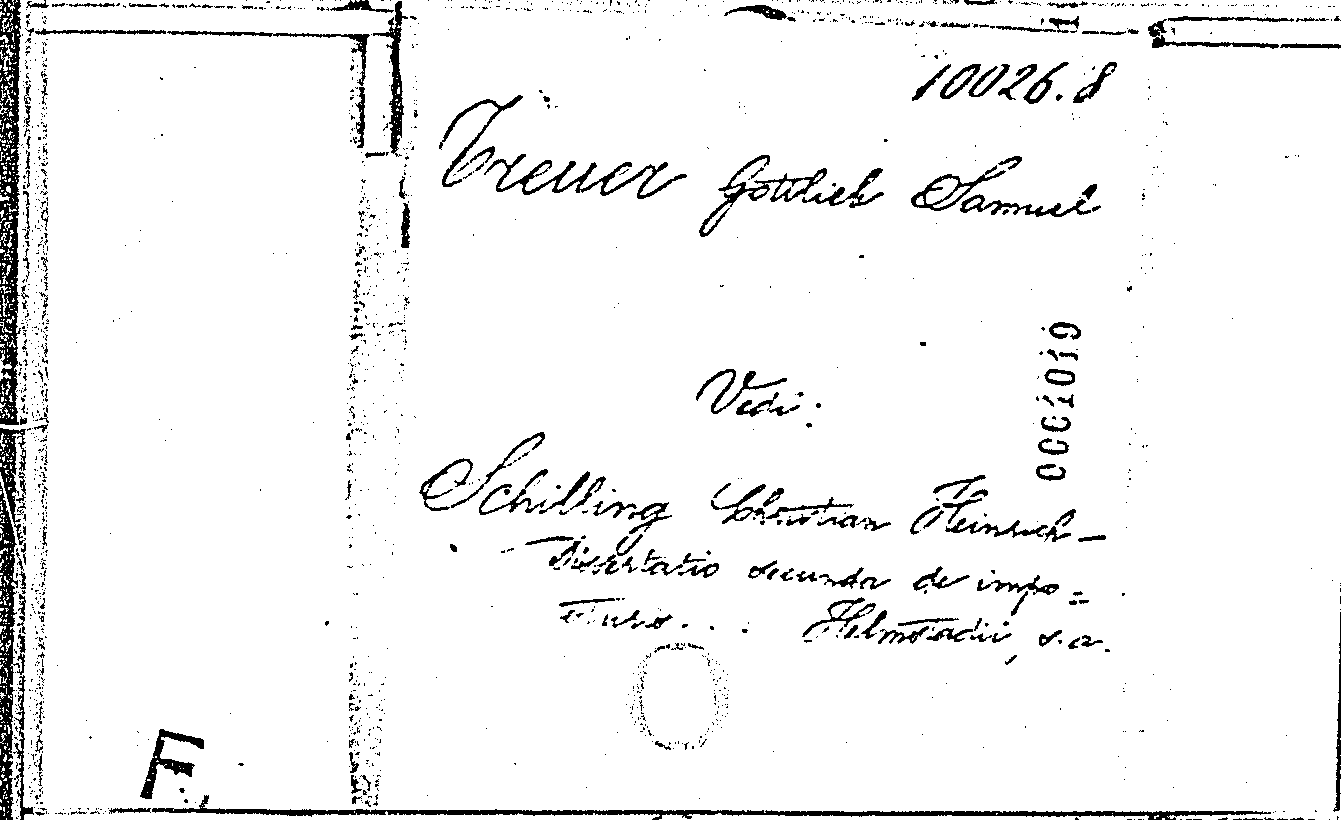 10026.8
Treuer Gottlieb Samuel
0001019
Vedi:
Schilling Christian Heinrich –
Dissertatio secunda de impo=
sturis... Helmstadii, s.a.
F